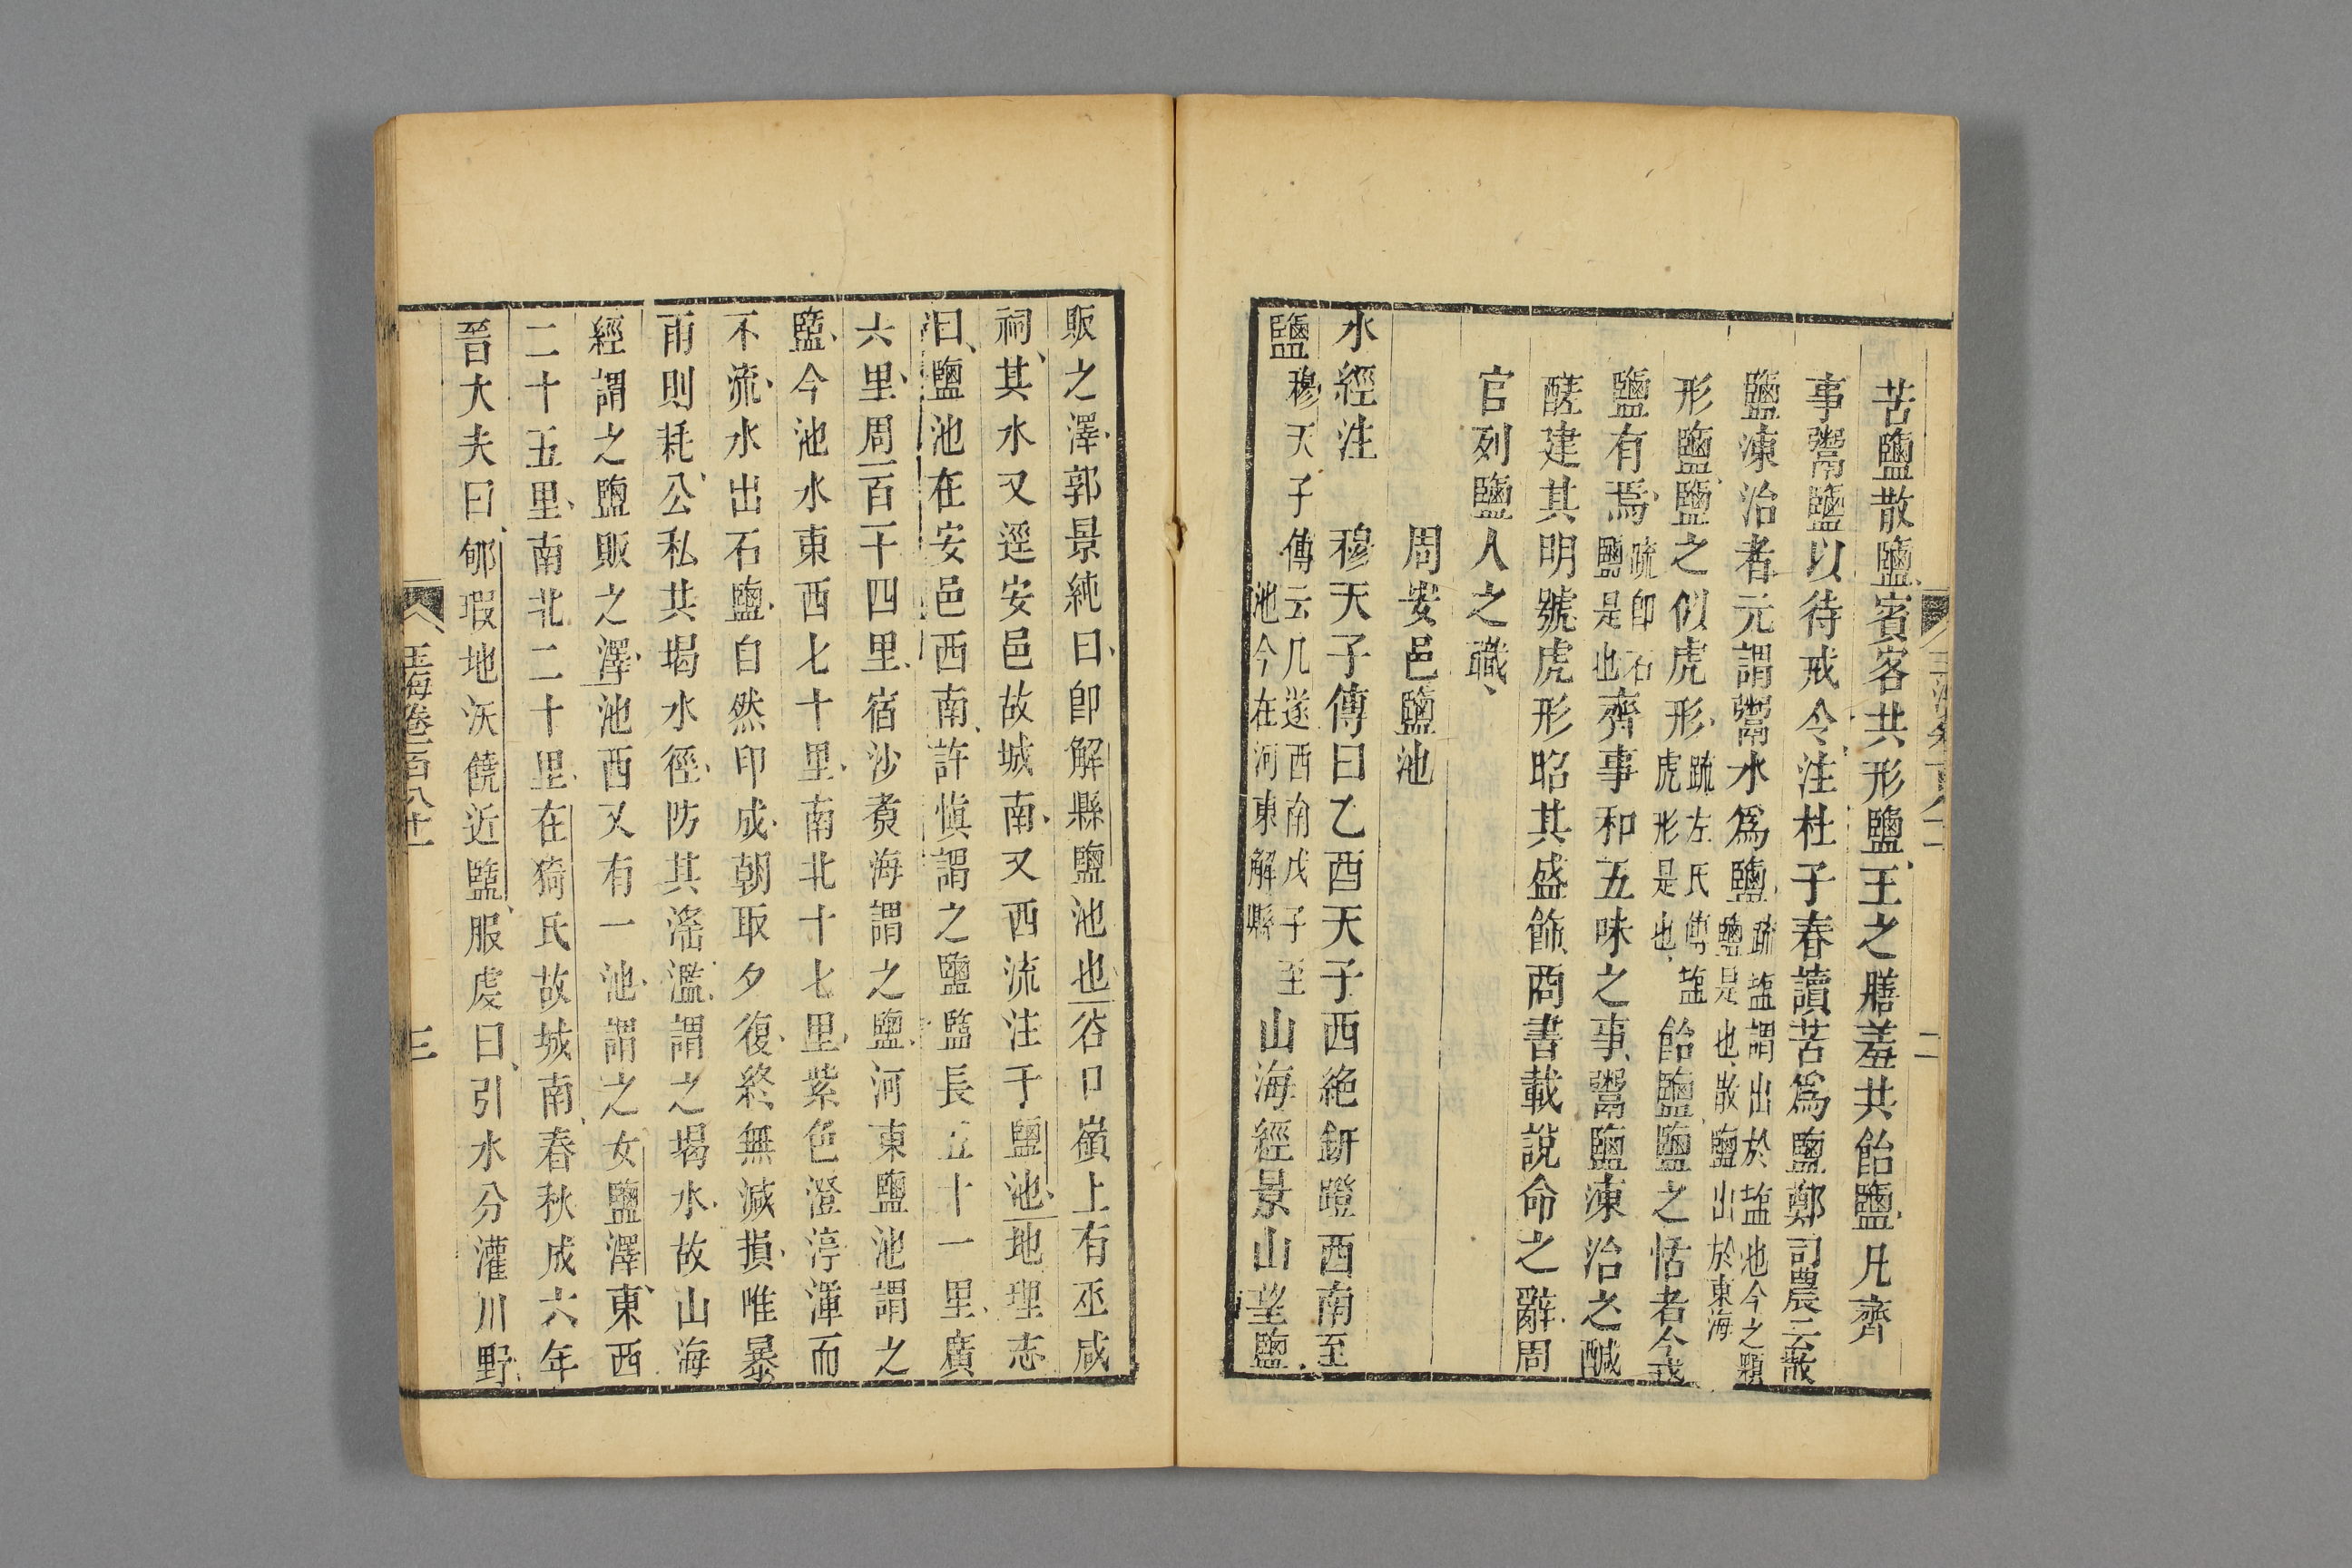 苦鹽散鹽賓客共形鹽王之膳羞共飴鹽凡齊
事鬻鹽以待戒令注杜子春讀苦爲盬鄭司農云散
鹽湅治者元謂鬻水爲鹽疏盬謂出於盬池今之顆鹽是也散鹽出於東海
形鹽鹽之似虎形疏左氏傳鹽虎形是也飴鹽鹽之恬者今戎
鹽有焉疏卽石鹽是也齊事和五味之事鬻鹽湅治之鹹
醝建其明號虎形昭其盛飾商書載說命之辭周
官列鹽人之職
周安邑鹽池
水經注 穆天子傳曰乙酉天子西絶鈃隥西南至
鹽穆天子傳云几遂西南戊子至池今在河東解縣山海經景山望鹽
販之澤郭景純曰卽解縣鹽池也谷口嶺上有巫咸
祠其水又逕安邑故城南又西流注于鹽池地理志
曰鹽池在安邑西南許慎謂之鹽盬長五十一里廣
六里周一百一十四里宿沙煑海謂之鹽河東鹽池謂之
盬今池水東西七十里南北十七里紫色澄渟渾而
不流水出石鹽自然印成朝取夕復終無減損唯暴
雨則耗公私共堨水徑防其淫濫謂之堨水故山海
經謂之鹽販之澤池西又有一池謂之女鹽澤東西
二十五里南北二十里在猗氏故城南春秋成六年
晉大夫曰郇瑕地沃饒近盬服虔曰引水分灌川野
玉海卷一百八十一
三
二